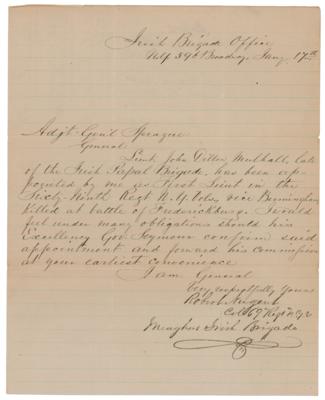 Irish Brigade Office
No 596 Broadway Jany 17th
Adjt. Gen'l Sprague
General
Lieut John Dillon Mulhall, late
of the Irish Papal Brigade, has been ap-
pointed by me as First Lieut in the
Sixty-Ninth Regt N.Y. Vols, vice Birmingham
killed at battle of Fredericksburg. I would
feel under many obligations should his
Excellency Gov. Seymour confirm said
appointment and forward his commission
at your earliest convenience
I am General
Very respectfully Yours
Robert Nugent
Col 69 Regt N.Y.V.
Meagher Irish Brigade